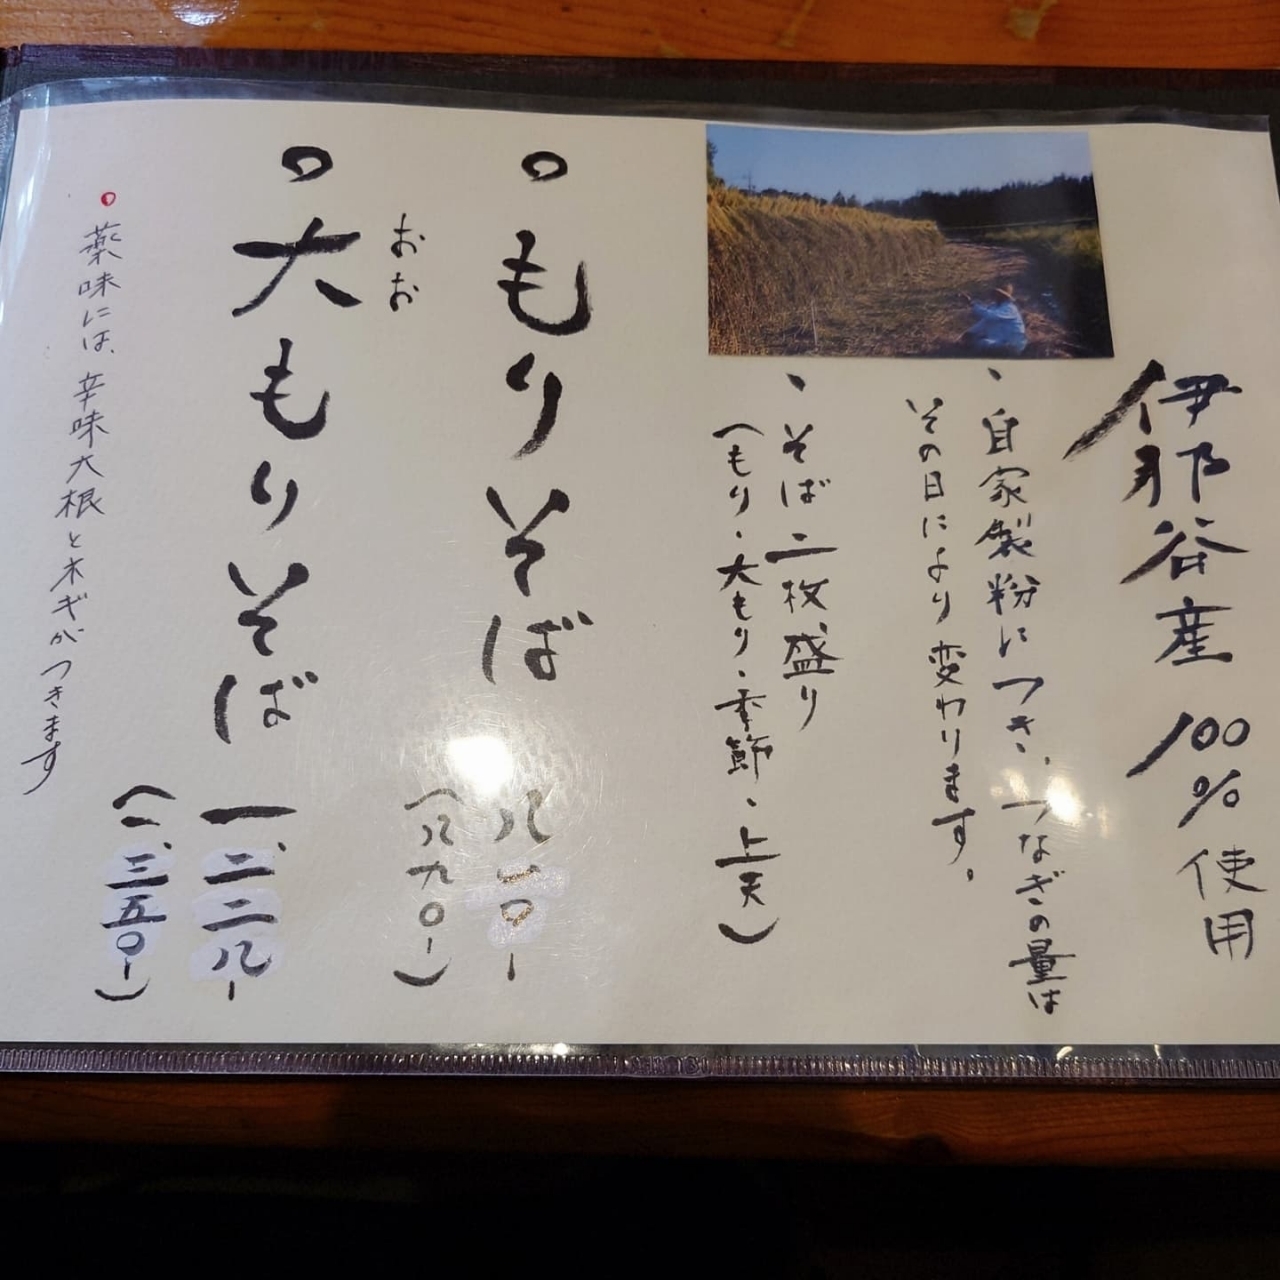 伊那谷産 100% 使用
・自家製粉につき、つなぎの量は
その日により変わります。
・そば二枚盛り
(もり・大もり・季節・上天)
○もりそば 八一〇-
(八九〇-)
おお
○大もりそば 一、二二八-
(一、三五〇-)
○薬味には、辛味大根とネギがつきます